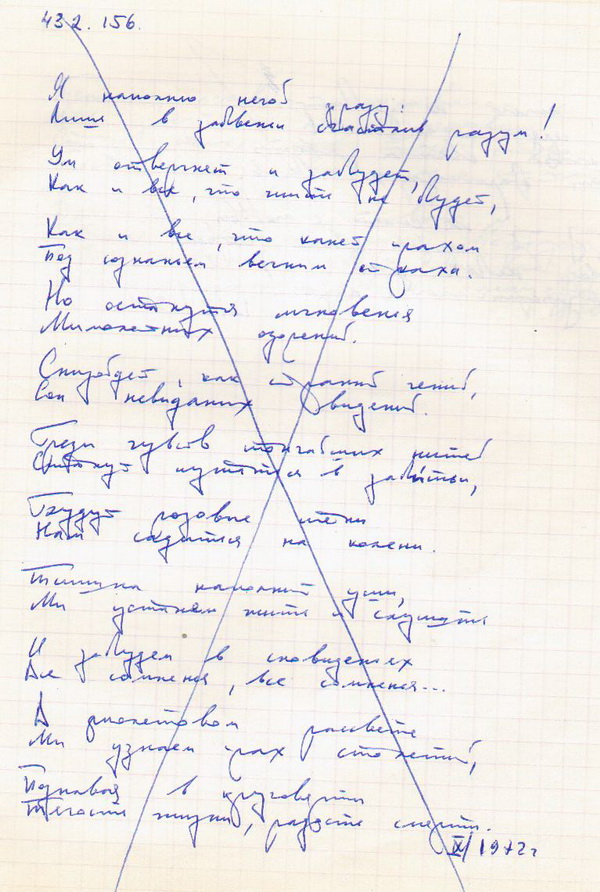 432. 156.
Я напомню
Лишь в забвеньи счастлив разум!
Ум отвергнет и забудет,
Как и все, что жить не будет,
Как и все, что канет прахом
Под сознаньем вечным страха.
Но останутся мгновенья
Мимолетных озарений.
Снизойдет, как странный гений,
Сон невиданых видений.
Грезы чувств тончайших нитей
Станут путаться в забытьи,
Будут розовые тени
Нам садиться на колени.
Тишина наполнит уши,
Мы устанем жить и слушать
И забудем в сновиденьях
Все сомненья, все сомненья...
А фиолетовом рассвете
Мы узнаем прах столетий,
Познавая в круговерти
Тягость жизни, радость смерти.
IX/1972г